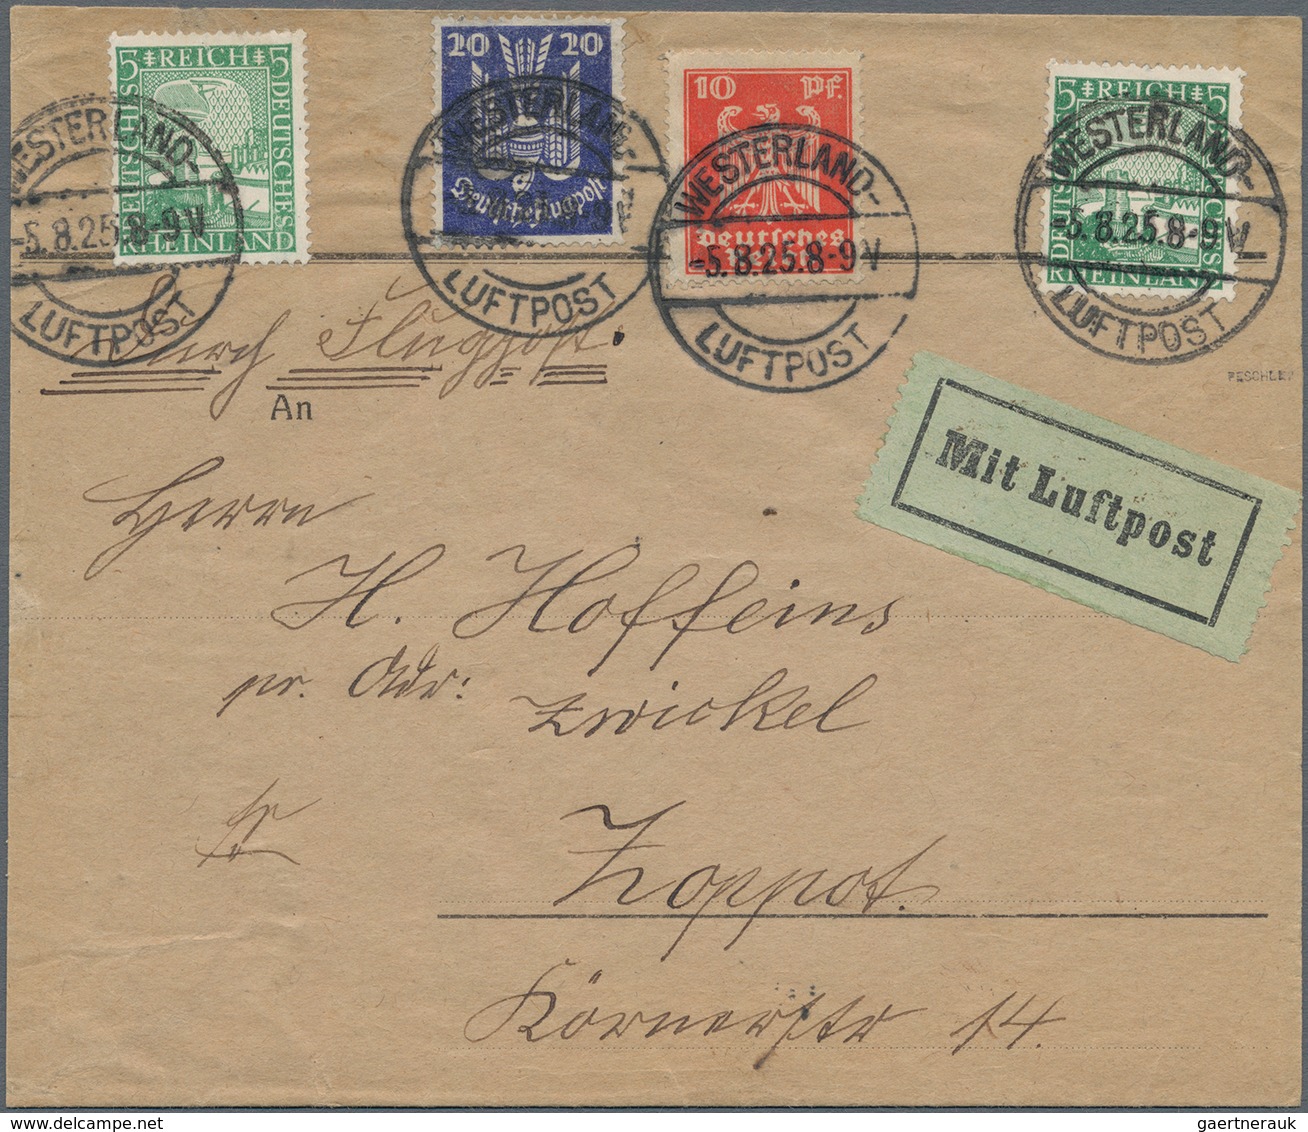 5 REICH 5
DEUTSCHES
DEUTSCHES
RHEINLAND
WESTERLAND-
-5.8.25.8-9V
LUFTPOST
20 20
Deutsche Flugpost
WESTERLAND-
LUFTPOST
10 Pf.
Deutsches
Reich
WESTERLAND-
-5.8.25.8-9V
LUFTPOST
5 REICH 5
RHEINLAND
WESTERLAND-
-5.8.25.8-9V
LUFTPOST
Durch Flugpost.
PESCHLE
An
Mit Luftpost
Herrn
H. Hoffeins
pr. Adr:
Zwickel
Zoppot.
Körnerstr 14.
gaertnerauk